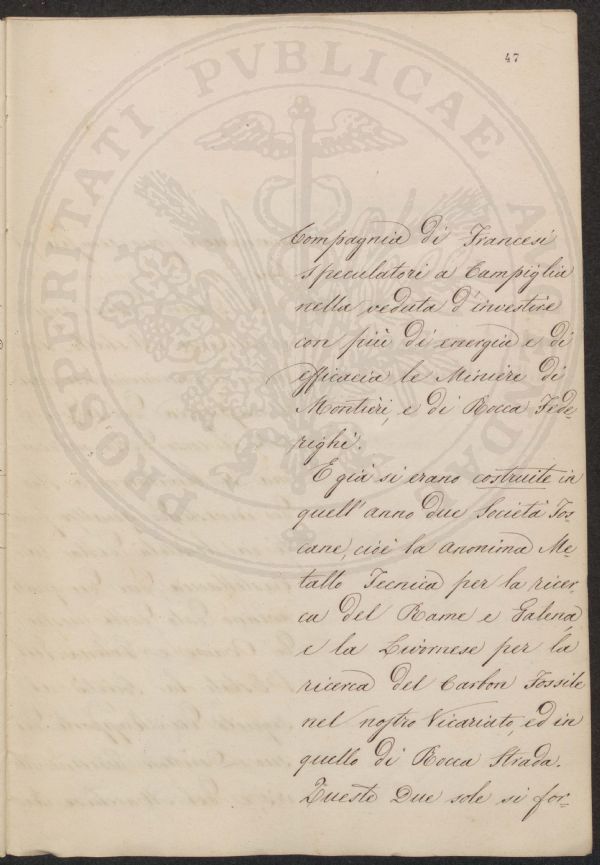 47
Compagnia di Francesi
speculatori a Campiglia
nella veduta d'investire
con più di energia e di
efficacia le Miniere di
Montieri, e di Rocca Fede-
righi.
E già si erano costruite in
quell'anno due Società Tos-
cane, cioè la anonima Me-
tallo Tecnica per la ricer-
ca del Rame e Galena,
e la Livornese per la
ricerca del Carbon Fossile
nel nostro Vicariato, ed in
quello di Rocca Strada.
Queste Due sole si for-
PROSPERITATI PVBLICAE